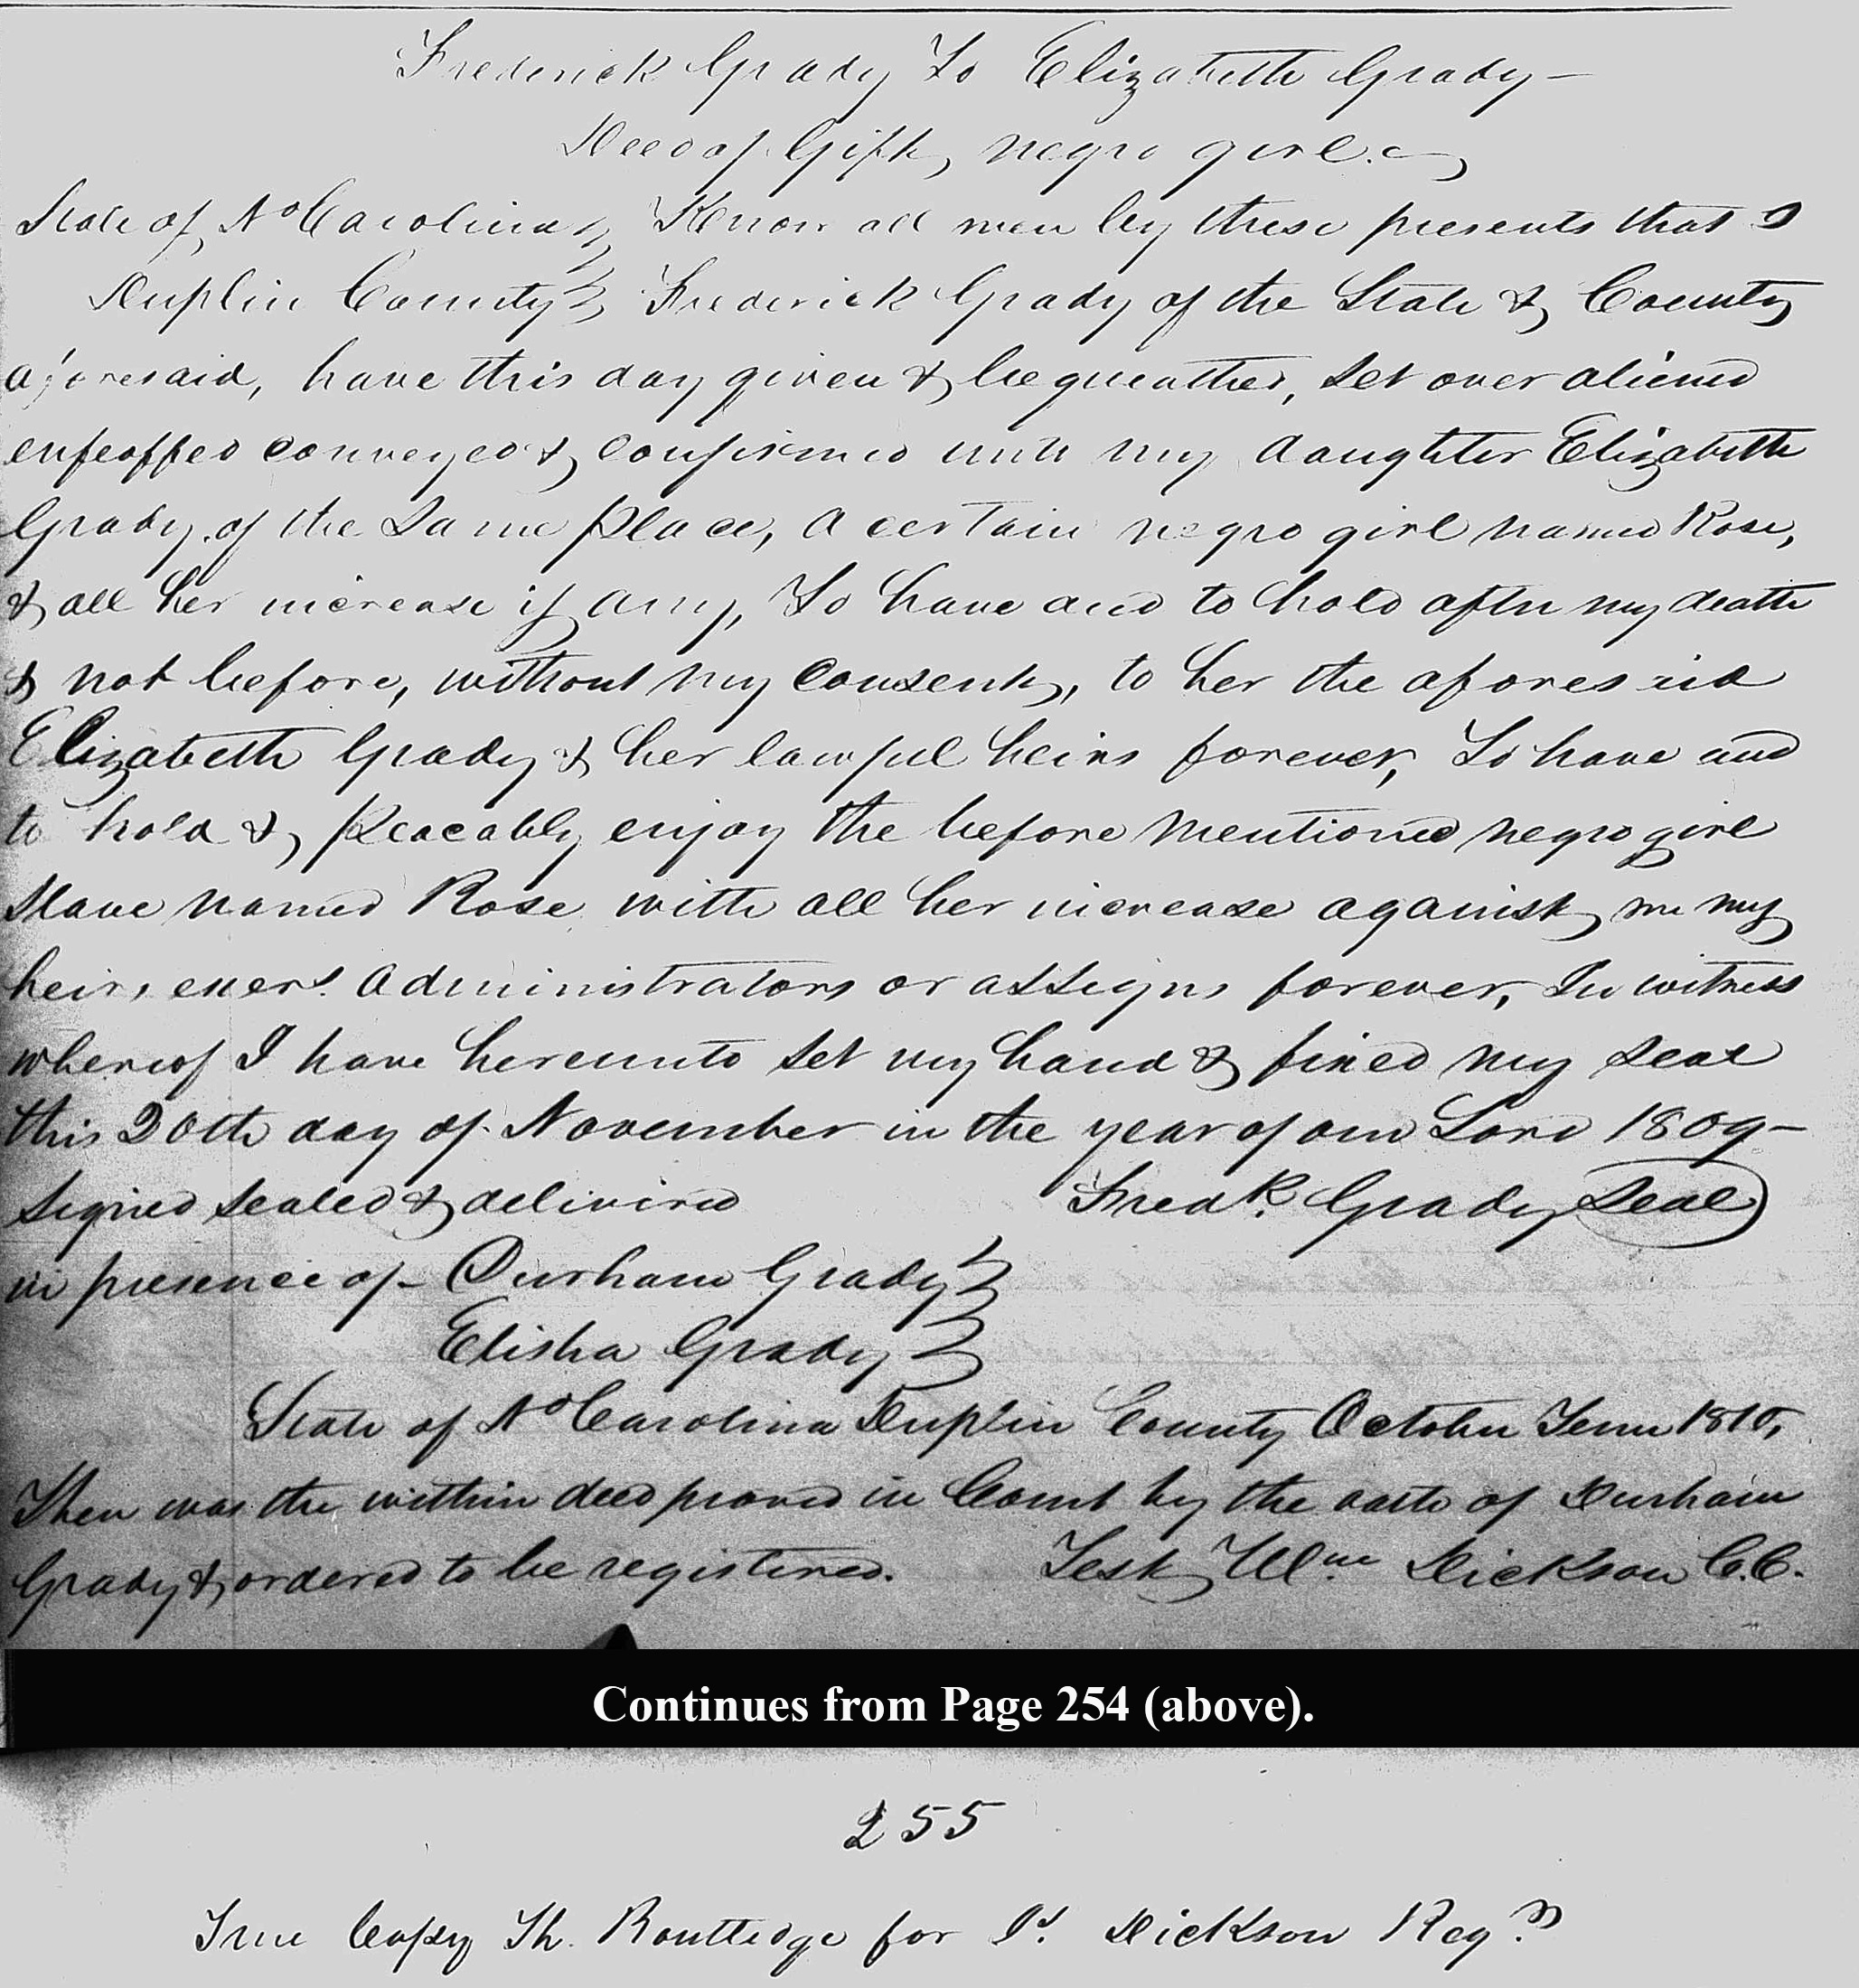 Frederick Grady To Elizabeth Grady –
Deed of Gift, negro girl.
State of No Carolina } Know all men by these presents that I
Duplin County } Frederick Grady of the State & County
aforesaid, have this day given & bequeathed, set over aliened
enfeoffed conveyed & confirmed unto my daughter Elizabeth
Grady of the same place, a certain negro girl named Rose,
& all her increase if any, To have and to hold after my death
& not before, without my consent, to her the aforesaid
Elizabeth Grady & her lawful heirs forever, To have and
to hold & peaceably enjoy the before mentioned negro girl
slave named Rose with all her increase against me my
heirs, exers. administrators or assigns forever, In witness
whereof I have hereunto set my hand & fixed my seal
this 20th day of November in the year of our Lord 1809 –
signed sealed & delivered Fredk. Grady Seal
in presence of – Durham Grady }
Elisha Grady }
State of No Carolina Duplin County October Term 1810,
Then was the within deed proved in Court by the oath of Durham
Grady & ordered to be registered. Test Wm Dickson C.C.
Continues from Page 254 (above).
255
True Copy Th. Routledge for Dickson Regr